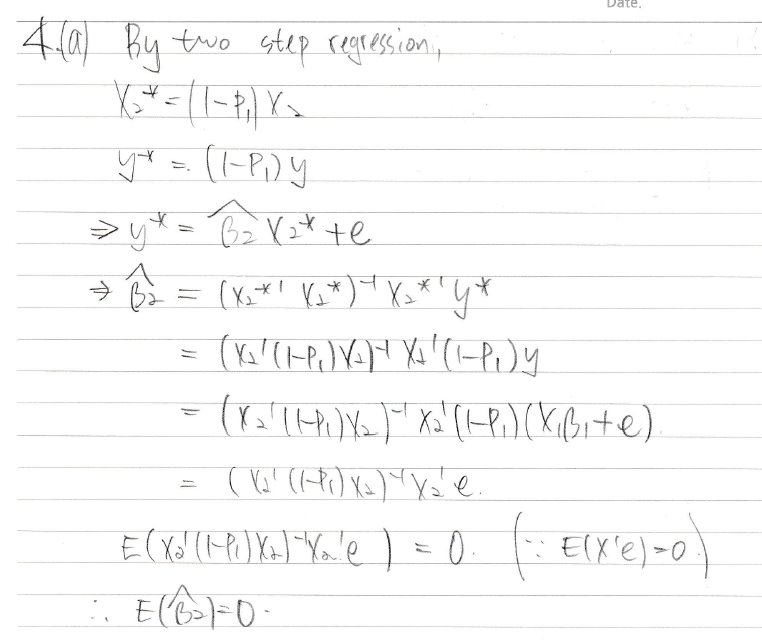 Date.
4.(a) By two step regression,
X₂* = (1-P₁) X₂
y* = (1-P₁) y
⇒ y* = β̂₂ X₂* + e
⇒ β̂₂ = (X₂*' X₂*)⁻¹ X₂*' y*
= (X₂'(1-P₁)X₂)⁻¹ X₂'(1-P₁) y
= (X₂'(1-P₁)X₂)⁻¹ X₂'(1-P₁)(X₁β₁+e)
= (X₂'(1-P₁)X₂)⁻¹ X₂'e.
E(X₂'(1-P₁)X₂)⁻¹X₂'e) = 0. (∵ E(X'e)=0)
∴ E(β̂₂)=0.